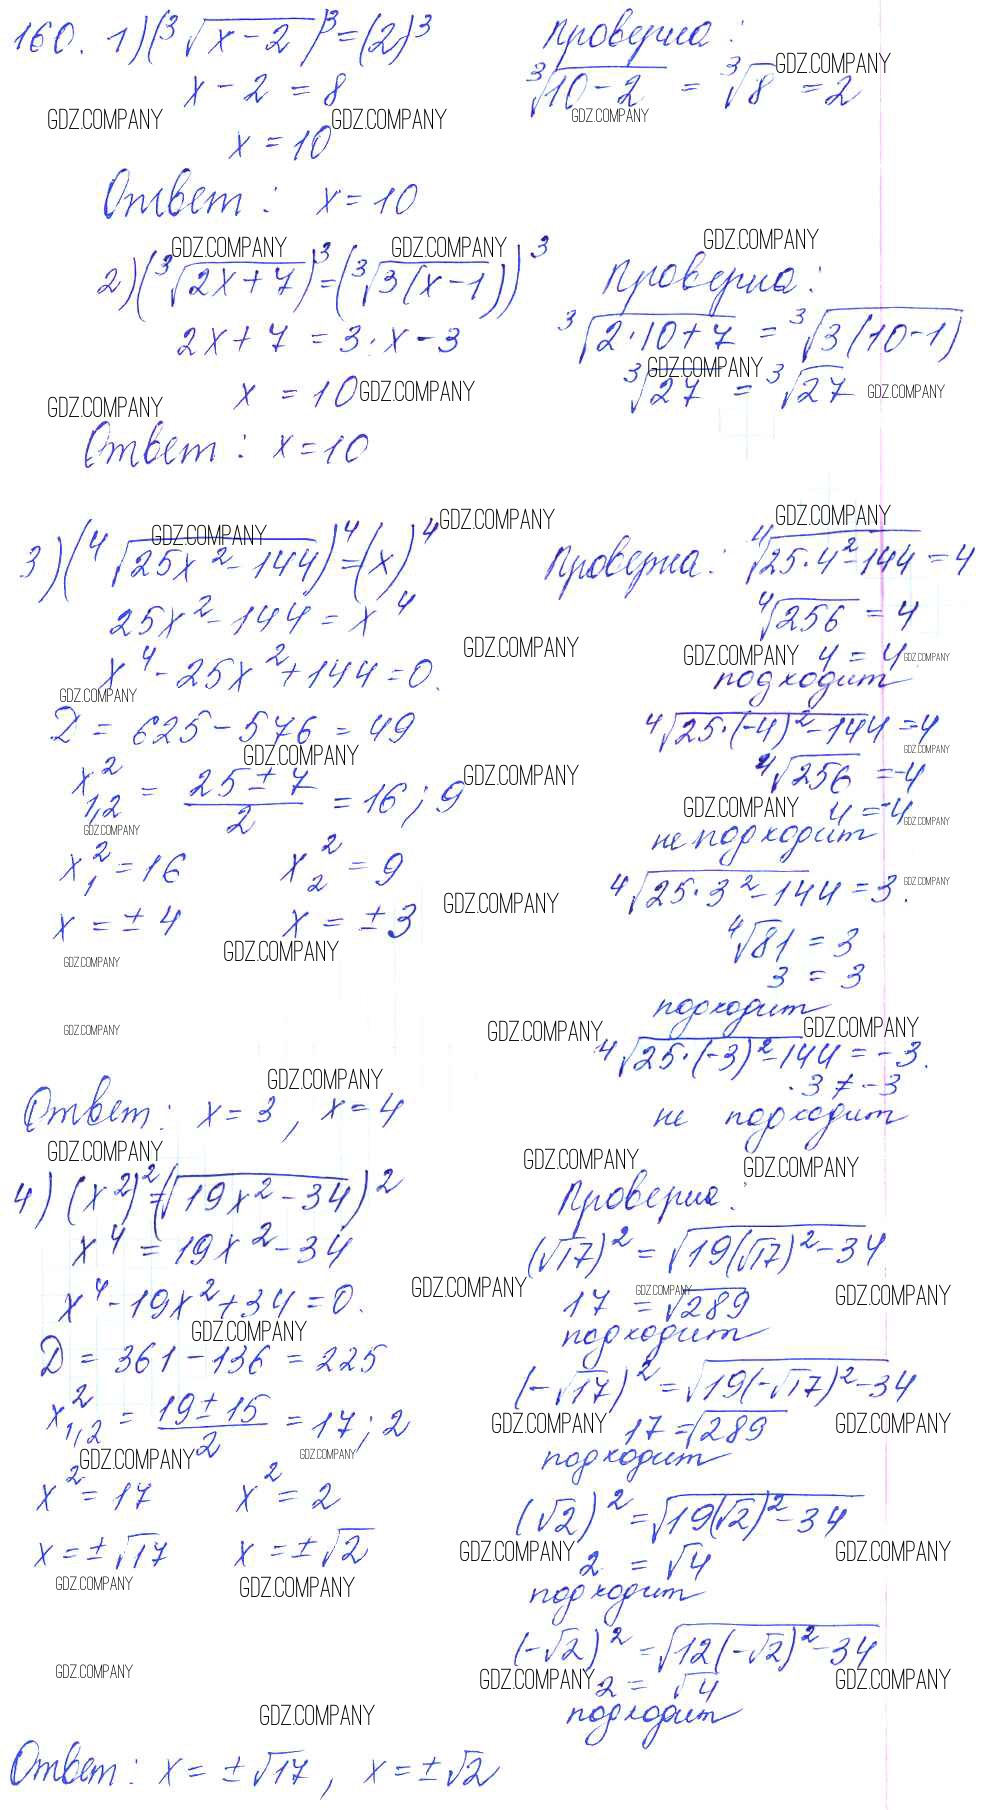 160. 1) (∛(x-2))³ = (2)³
x - 2 = 8
x = 10
Ответ: x = 10
Проверка:
∛(10-2) = ∛8 = 2
2) (∛(2x+7))³ = (∛(3(x-1)))³
2x + 7 = 3·x - 3
x = 10
Ответ: x = 10
Проверка:
∛(2·10+7) = ∛(3(10-1))
∛27 = ∛27
3) (∜(25x²-144))⁴ = (x)⁴
25x² - 144 = x⁴
x⁴ - 25x² + 144 = 0.
D = 625 - 576 = 49
x²₁,₂ = (25 ± 7)/2 = 16; 9
x₁² = 16 x₂² = 9
x = ± 4 x = ± 3
Проверка: ∜(25·4²-144) = 4
∜256 = 4
4 = 4
подходит
∜(25·(-4)²-144) = 4
∜256 = -4
4 = -4
не подходит
∜(25·3²-144) = 3.
∜81 = 3
3 = 3
подходит
∜(25·(-3)²-144) = -3.
3 ≠ -3
не подходит
Ответ: x = 3, x = 4
4) (x²)² = (√(19x²-34))²
x⁴ = 19x² - 34
x⁴ - 19x² + 34 = 0.
D = 361 - 136 = 225
x²₁,₂ = (19 ± 15)/2 = 17; 2
x² = 17 x² = 2
x = ±√17 x = ±√2
Проверка:
(√17)² = √(19(√17)²-34)
17 = √289
подходит
(-√17)² = √(19(-√17)²-34)
17 = √289
подходит
(√2)² = √(19(√2)²-34)
2 = √4
подходит
(-√2)² = √(12(-√2)²-34)
2 = √4
подходит
Ответ: x = ±√17, x = ±√2
GDZ.COMPANY